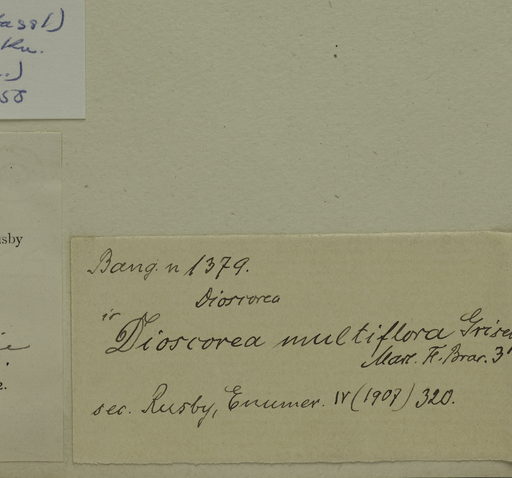 Hassl)
Kn.
.)
58
usby
ie
.
2.
Bang. n 1379.
Dioscorea
is
Dioscorea multiflora Grise
Mart. Fl. Bras. 3
sec. Rusby, Enumer. IV (1907) 320.